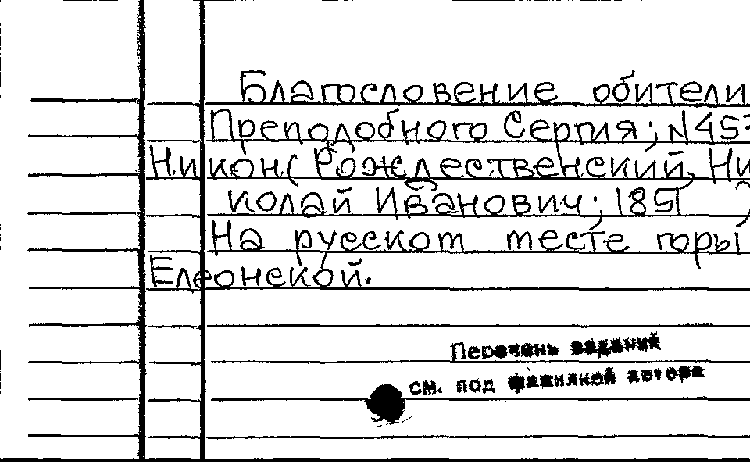 Благословение обители
Преподобного Сергия; N453
Никон (Рождественский, Ни
колай Иванович; 1851 )
На русском месте горы
Елеонской.
Перечень изданий
см. под фамилией автора